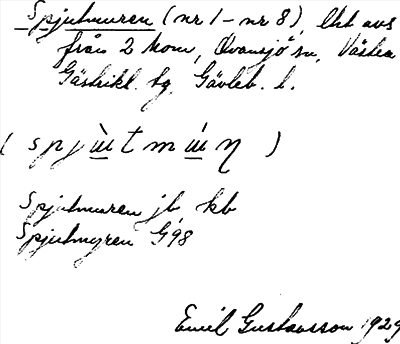 Spjutmuren (nr 1 - nr 8), lht avs
från 2 kom, Ovansjö sn, Västra
Gästrikl. tg, Gävleb. l.
Spjutmuren jb, kb
Spjutmyren G98
Emil Gustavsson 1929